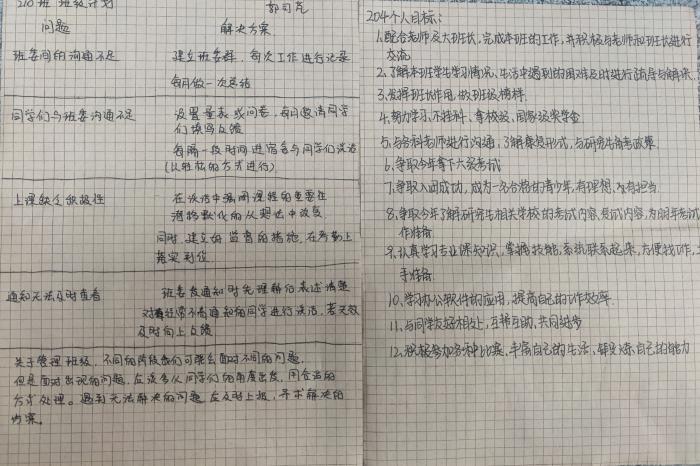 210班 班级计划
问题 解决方案
班委间的沟通不足 建立班委群，每次工作进行记录
每月做一次总结
同学们与班委沟通不足 设置量表或问卷，每月邀请同学
们填写反馈
每隔一段时间进宿舍与同学们谈话
(以轻松的方式进行)
上课缺乏积极性 在谈话中强调课程的重要性
潜移默化的从思想中改变
同时，建立好监督的措施，在考勤上
落实到位
通知无法及时查看 班委发通知时先理解后表述清楚
对经常不看通知的同学进行谈话，若无效
及时向上反馈
关于管理班级，不同的阶段我们可能会面对不同的问题，
但是面对出现的问题，应该多从同学们的角度出发，用合适的
方式处理。遇到无法解决的问题应及时上报，寻求解决的
方案。
204个人目标：
1.配合老师及大班长，完成本班的工作，并积极与老师和班长进行
交流
2.了解本班学生学习情况，生活中遇到的困难及时进行疏导与解决
3.发挥班长作用，做好班级榜样.
4.努力学习，不挂科，拿校级，国家级奖学金
5.与各科老师进行沟通，了解 形式，与研究生备考政策.
6.争取今年拿下六级考试
7.争取入团成功，成为一名合格的青少年，有理想，有担当.
8.争取今年了解研究生相关学校的考试内容，复试内容，为明年考试
作准备
9.认真学习专业课知识，掌握技能，系统联系起来，方便找工作，
手准备
10.学习办公软件的应用，提高自己的工作效率.
11.与同学友好相处，互帮互助，共同进步
12.积极参加各种比赛，丰富自己的生活，锻炼自己的能力